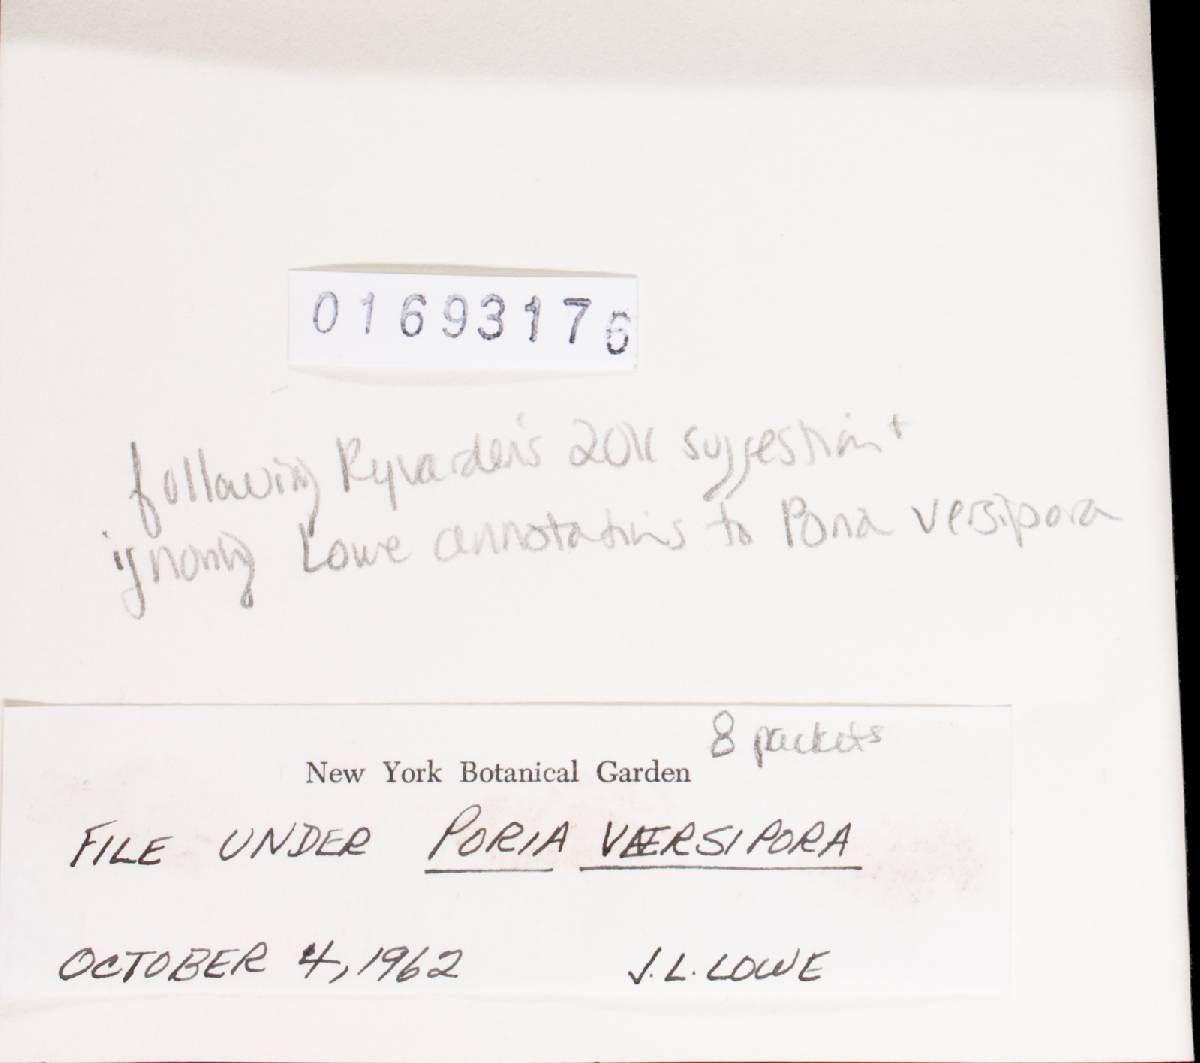 01693176
following Ryvarden's 2011 suggestion +
ignoring Lowe annotations to Poria versipora
8 packets
New York Botanical Garden
FILE UNDER PORIA VERSIPORA
OCTOBER 4, 1962 J. L. LOWE